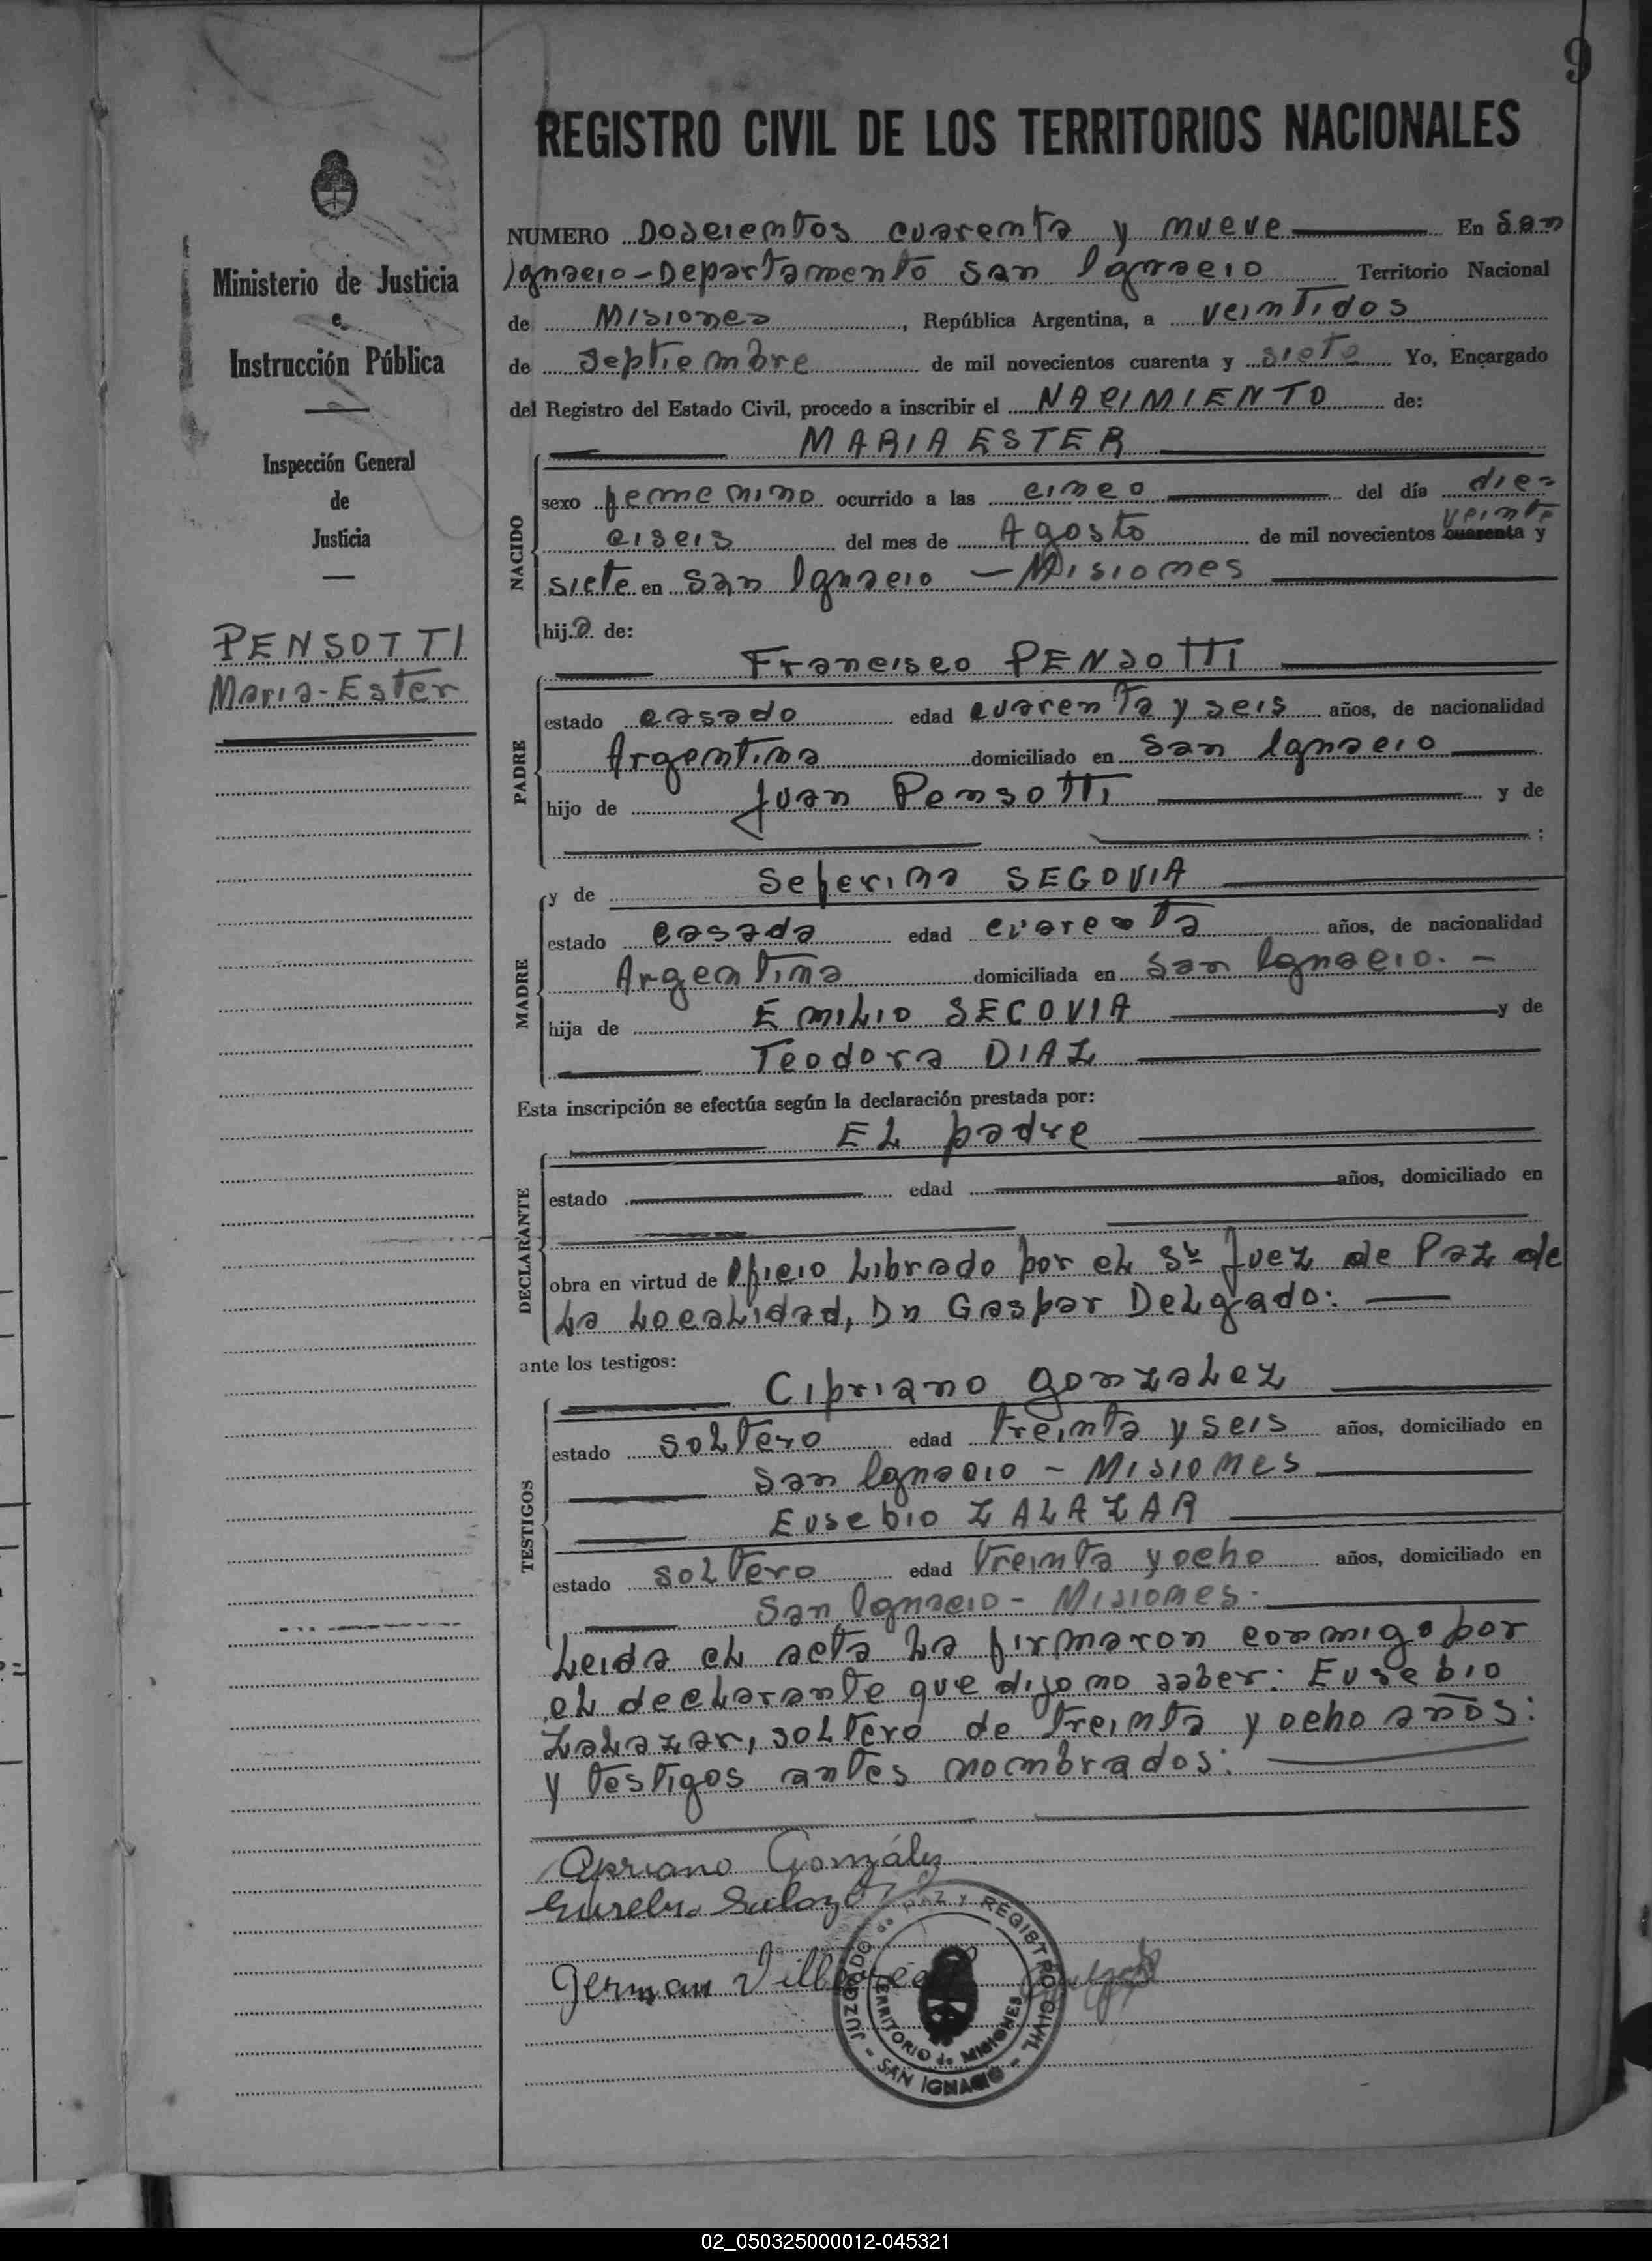 9
REGISTRO CIVIL DE LOS TERRITORIOS NACIONALES
Ministerio de Justicia
e
Instrucción Pública
Inspección General
de
Justicia
PENSOTTI
Maria-Ester
NUMERO Doscientos cuarenta y nueve En San
Ignacio-Departamento San Ignacio Territorio Nacional
de Misiones, República Argentina, a veintidos
de septiembre de mil novecientos cuarenta y siete Yo, Encargado
del Registro del Estado Civil, procedo a inscribir el NACIMIENTO de:
MARIA ESTER
NACIDO
sexo femenino ocurrido a las cinco del día die-
veinte
ciseis del mes de Agosto de mil novecientos cuarenta y
siete en San Ignacio - Misiones
hija de:
Francisco PENSOTTI
PADRE
estado casado edad cuarenta y seis años, de nacionalidad
Argentina domiciliado en San Ignacio
hijo de Juan Pensotti y de
;
y de Seferina SEGOVIA
MADRE
estado casada edad cuarenta años, de nacionalidad
Argentina domiciliada en San Ignacio. -
hija de EMILIO SEGOVIA y de
Teodora DIAZ
Esta inscripción se efectúa según la declaración prestada por:
EL padre
DECLARANTE
estado edad años, domiciliado en
obra en virtud de Oficio Librado por el Sr Juez de Paz de
La Localidad, Dn Gaspar Delgado:
ante los testigos:
Cipriano Gonzalez
TESTIGOS
estado soltero edad treinta y seis años, domiciliado en
San Ignacio - Misiones
Eusebio ZALAZAR
estado soltero edad treinta y ocho años, domiciliado en
San Ignacio - Misiones.
Leida el acta la firmaron conmigo por
el declarante que dijo no saber: Eusebio
Zalazar, soltero de treinta y ocho años:
y testigos antes nombrados:
Cipriano González
Eusebio Salazar
German
JUZGADO de PAZ y REGISTRO CIVIL - SAN IGNACIO -
TERRITORIO de MISIONES
02_050325000012-045321